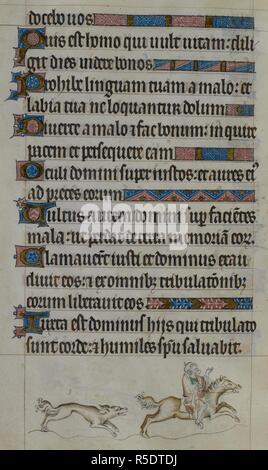 docebo uos
Quis est homo qui uult uitam: dili
git dies uidere bonos
Prohibe linguam tuam a malo: et
labia tua ne loquantur dolum
Diuerte a malo & fac bonum: inquire
pacem et persequere eam
Oculi domini super iustos: et aures eius
ad preces eorum
Uultus autem domini sup facientes
mala: ut perdat de terra memoriam eor
Clamauerunt iusti et dominus exau
diuit eos: & ex omnibus tribulationibus
eorum liberauit eos
Iuxta est dominus hijs qui tribulato
sunt corde: & humiles spu saluabit
alamy
Image ID: R5DTDJ
www.alamy.com